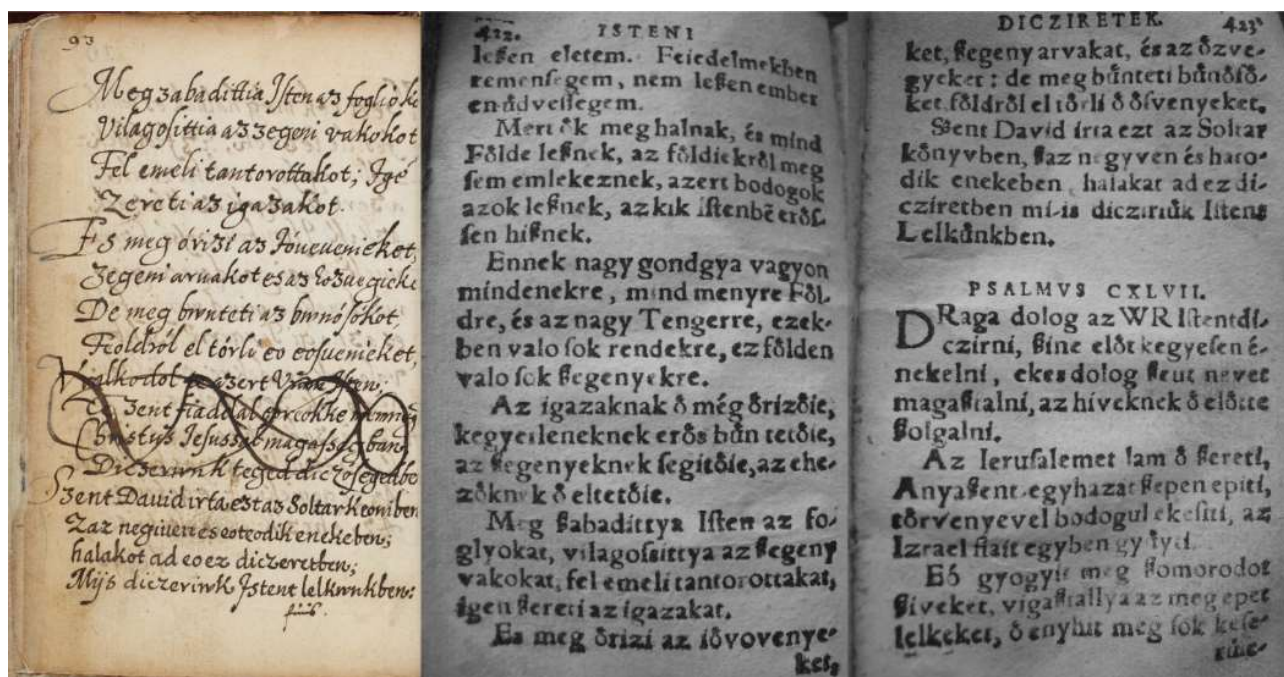 93
Megzabadittia Isten az foglioka
Vilagosittia az zegeni vakokot
Fel emeli tantorottakot; Igē
Zereti az igazakot.
Es meg órizi az Ióueuenieket,
Zegeni aruakot es az ozuegieke
De meg bwnteti az bwnósókot,
Feoldról el tórli eo eosuenieket,
azert Vram Isten;
Zent fiaddal
Christus Iesussal magassagban
Diczerwnk teged diczosegedbe
Szent Dauid irta ezt az Soltar keoniben
Zaz negiuen es eoteodik enekeben;
halakot ad eo ez diczeretben;
Mijs dicze­riwk Istent lelkwnkben:
finis.
422. ISTENI
leſzen eletem. Feiedelmekben
remenſegem, nem leſzen ember
en ůdveſſegem.
Mert ők meg halnak, és mind
Főlde leſznek, az főldiekről meg
ſem emlekeznek, azert bodogok
azok leſznek, az kik iſtenbē erőſ-
ſen hiſznek.
Ennek nagy gondgya vagyon
mindenekre, mind menyre Fől-
dre, és az nagy Tengerre, ezek-
ben valo ſok rendekre, ez főlden
valo ſok ſzegenyekre.
Az igazaknak ő még őrizőie,
kegyetleneknek erős bůn tetőie,
az ſzegenyeknek ſegitőie, az ehe-
zőknek ő eltetőie.
Meg ſzabadittya Iſten az fo-
glyokat, vilagoſsittya az ſzegeny
vakokat, fel emeli tantorottakat,
igen ſzereti az igazakat.
Es meg őrizi az iővovenye-
ket,
DICZIRETEK. 423
ket, ſzegeny arvakat, és az őzve-
gyeket: de meg bůnteti bůnőſő-
ket, főldről el tőrli ő őſvenyeket.
Szent David írta ezt az Soltar
kőnyvben, ſzaz negyven és haro-
dik enekeben, halakat ad ez di-
cziretben mi-is dicziriůk Iſtent
Lelkůnkben.
PSALMVS CXLVII.
DRaga dolog az WR Iſtent di-
czirni, ſzine előt kegyeſen é-
nekelni, ekes dolog ſzent nevet
magaſztalni, az híveknek ő előtte
ſzolgalni.
Az Ieruſalemet lam ő ſzereti,
Anyaſzent-egyhazat ſzepen epiti,
tőrvenyevel bodogul ekeſiti, az
Izrael fiait egyben gyůyti.
Eő gyogyit meg ſzomorodot
ſziveket, vigaſztallya az meg epet
lelkeket, ő enyhit meg ſok keſe-